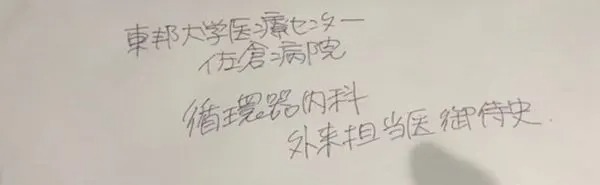 東邦大学医療センター
佐倉病院
循環器内科
外来担当医 御侍史.